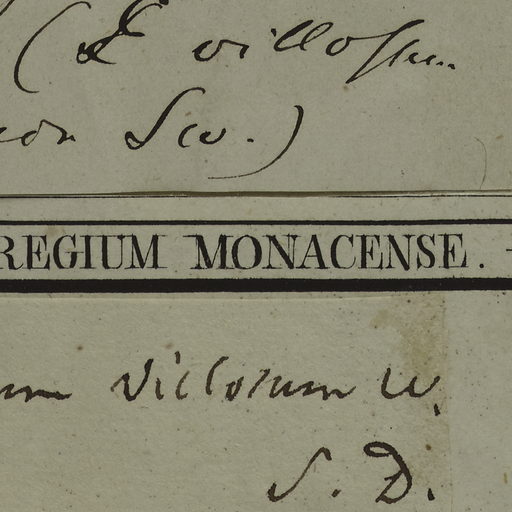 (E villosum
non Sw.)
REGIUM MONACENSE.
um villosum W.
S. D.